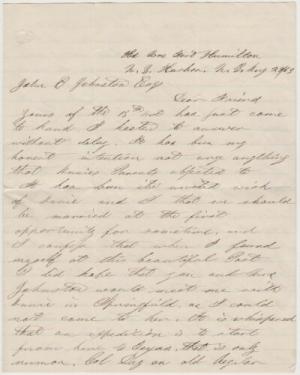 Fort Hamilton
N. Y. Harbor, N. Y. Aug
John B Johnston Esq
Dear Friend
Yours of the 15th inst has just come
to hand. I hasten to answer
without delay. It has been my
honest intention not any anything
that Annies Parents objected to
It has been the united wish
of Annie and I that we should
be married at the first
opportunity for sometime, and
I confess that when I found
myself at this beautiful Post
I did hope that you and Mrs
Johnston would meet me with
Annie in Springfield, as I could
not come to her. It is whispered
that an expedition is to start
from here to Texas, that is only
rumor. Col an old Regular